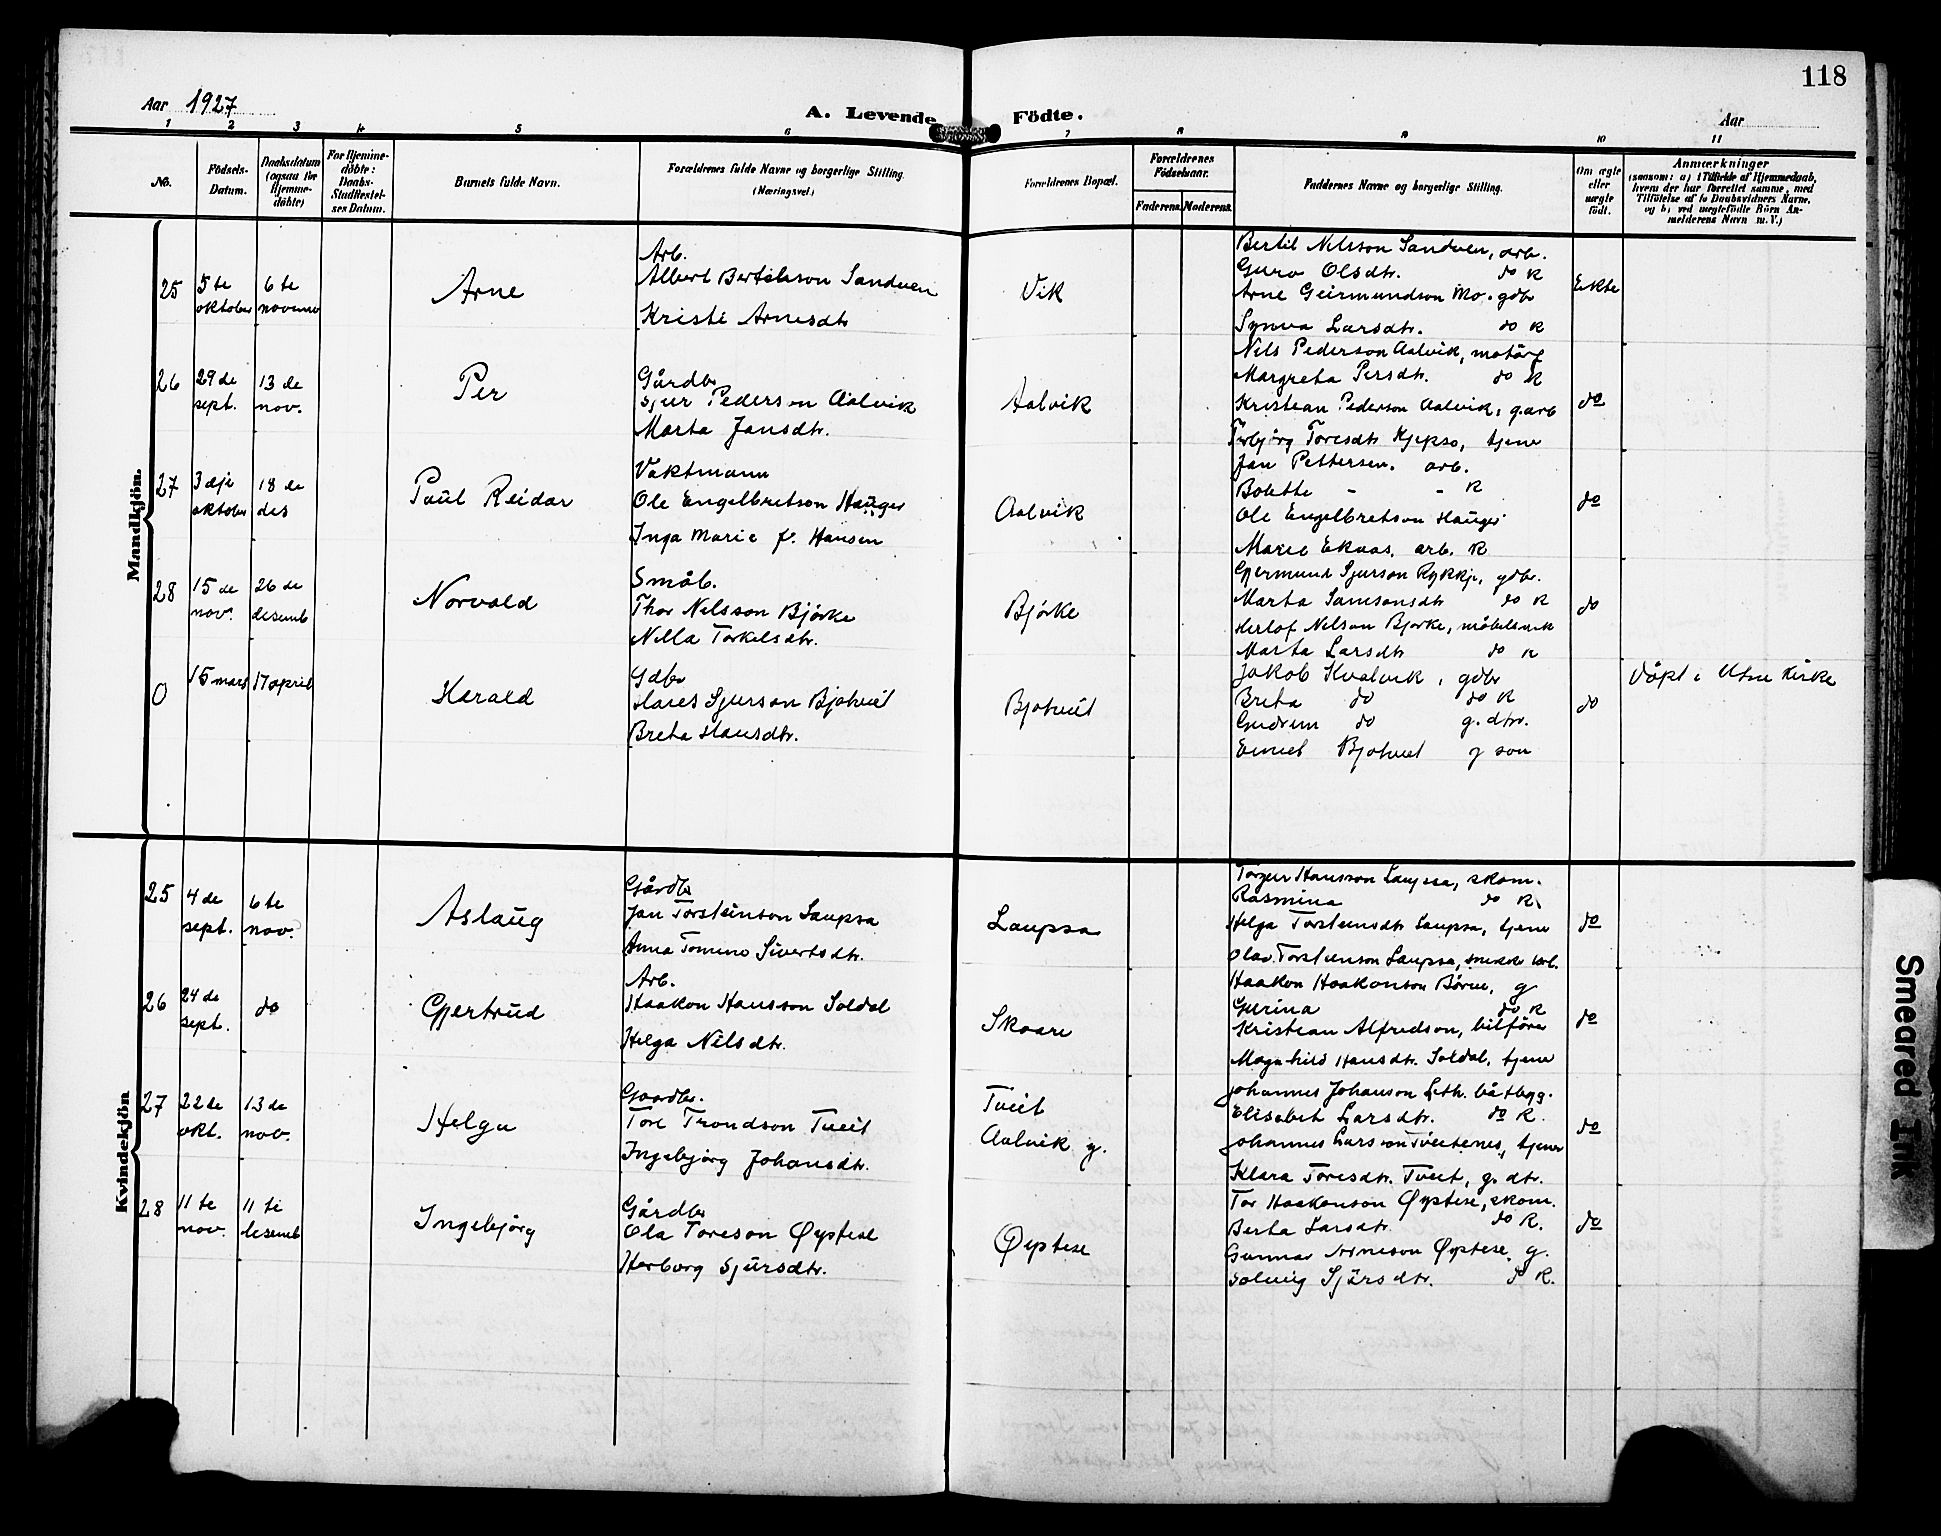 118
Aar 1927
A. Levende Födte.
Aar
1 2 3 4 5 6 7 8 9 10 11
No.
Födsels-
Datum.
Daabsdatum
(ogsaa for
Hjemme-
döbte)
For Hjemme-
döbte:
Daabs-
Stadfæstel-
ses Datum.
Barnets fulde Navn.
Forældrenes fulde Navne og borgerlige Stilling.
(Næringsvei.)
Forældrenes Bopæl.
Forældrenes
Födselsaar.
Faderens.
Moderens.
Faddernes Navne og borgerlige Stilling.
Om ægte
eller
uægte
født.
Anmærkninger
(saasom: a) i Tilfælde af Hjemmedaab,
hvem der har forrettet samme, med
Tilføielse af to Daabsvidners Navne,
og b) ved uægtefödte Börn An-
melderens Navn m. V.)
Mandkjön.
25
5te
oktober
6te
november
Arne
Arb.
Albert Bertelsson Sandven
Kristi Arnesdtr
Vik
Bertil Nilsson Sandven, arb.
Guro Olsdtr. do K
Arne Geirmundson Mo. gdbr
Synva Larsdtr. do K
Ekte
26
29de
sept.
13de
nov.
Per
Gårdbr
Sjur Pederson Aalvik
Marta Jansdtr.
Aalvik
Nils Pederson Aalvik,
Margreta Persdtr. do K
Kristian Pederson Aalvik, g.arb
Torbjørg Toresdtr Kjepso, tjener
do
27
3dje
oktober
18de
des
Paul Reidar
Vaktmann
Ole Engelbretson Hauger
Inga Marie f. Hansen
Aalvik
Jan Pettersen. arb.
Bolette - - K
Ole Engelbretson Hauger
Marie Eknas. arb. K
do
28
15de
nov.
26de
desemb
Norvald
Småb.
Thor Nilsson Bjørke
Nilla Torkelsdtr.
Bjørke
Gjermund Sjurson Rykkje, gdbr.
Marta Samsonsdtr do K
Herlof Nilson Bjørke, möbelsnek
Marta Larsdtr do K
do
0
15 mars
17 april
Harald
Gdbr
Hans Sjurson Bjotveit
Breta Hansdtr.
Bjotveit
Jakob Kvalvik, gdbr
Breta do do K
Gudrun do g. dtr.
Bjotveit g son
do
Døpt i Utne Kirke
Kvindekjön
25
4de
sept.
6te
nov.
Aslaug
Gårdbr
Jan Torsteinson Laupsa
Anna Tomine Sivertsdtr.
Laupsa
Torgeir Hansson Laupsa, skom.
Rasmina do K.
Helga Torsteinsdtr Laupsa, tjener
Olav Torsteinson Laupsa,
do
26
24de
sept.
do
Gjertrud
Arb.
Haakon Hansson Soldal
Helga Nilsdtr.
Skaare
Haakon Haakonson Børve, g
Gurina do K
Kristian Alfredson, bilförer
Magnhild Hansdtr. Soldal, tjener
do
27
22de
okt.
13de
nov.
Helga
Gaardbr.
Tore Trondson Tveit
Ingebjørg Johansdtr.
Tveit
Aalvik g.
Johannes Johanson Leth. båtbygg.
Elisabet Larsdtr. do K.
Johannes Larsson Tveitenes, tjener
Klara Toresdtr. Tveit, g. dtr.
do
28
11te
nov.
11te
desemb
Ingebjørg
Gårdbr
Ola Toreson Øystese
Herborg Sjursdtr.
Øystese
Tor Haakonson Øystese, skom.
Berta Larsdtr. do K.
Gunnar Arneson Øystese, g.
Solveig Sjursdtr. do K.
do
Smeared Ink